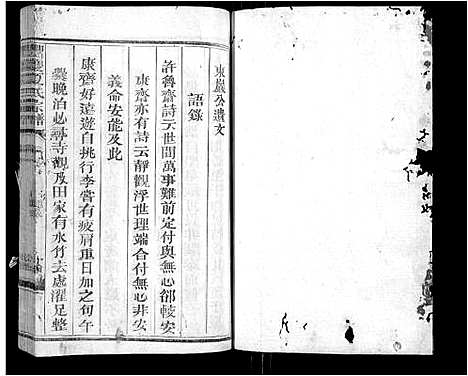 東巖公遺文
語錄
許魯齋詩云世間萬事難前定付與無心郤較安
康齋亦有詩云靜觀浮世理端合付無心非安
義命安能及此
康齋好遠遊自挑行李嘗有疲肩重日加之句午
爨晚泊必尋寺觀及田家有水竹去處濯足整